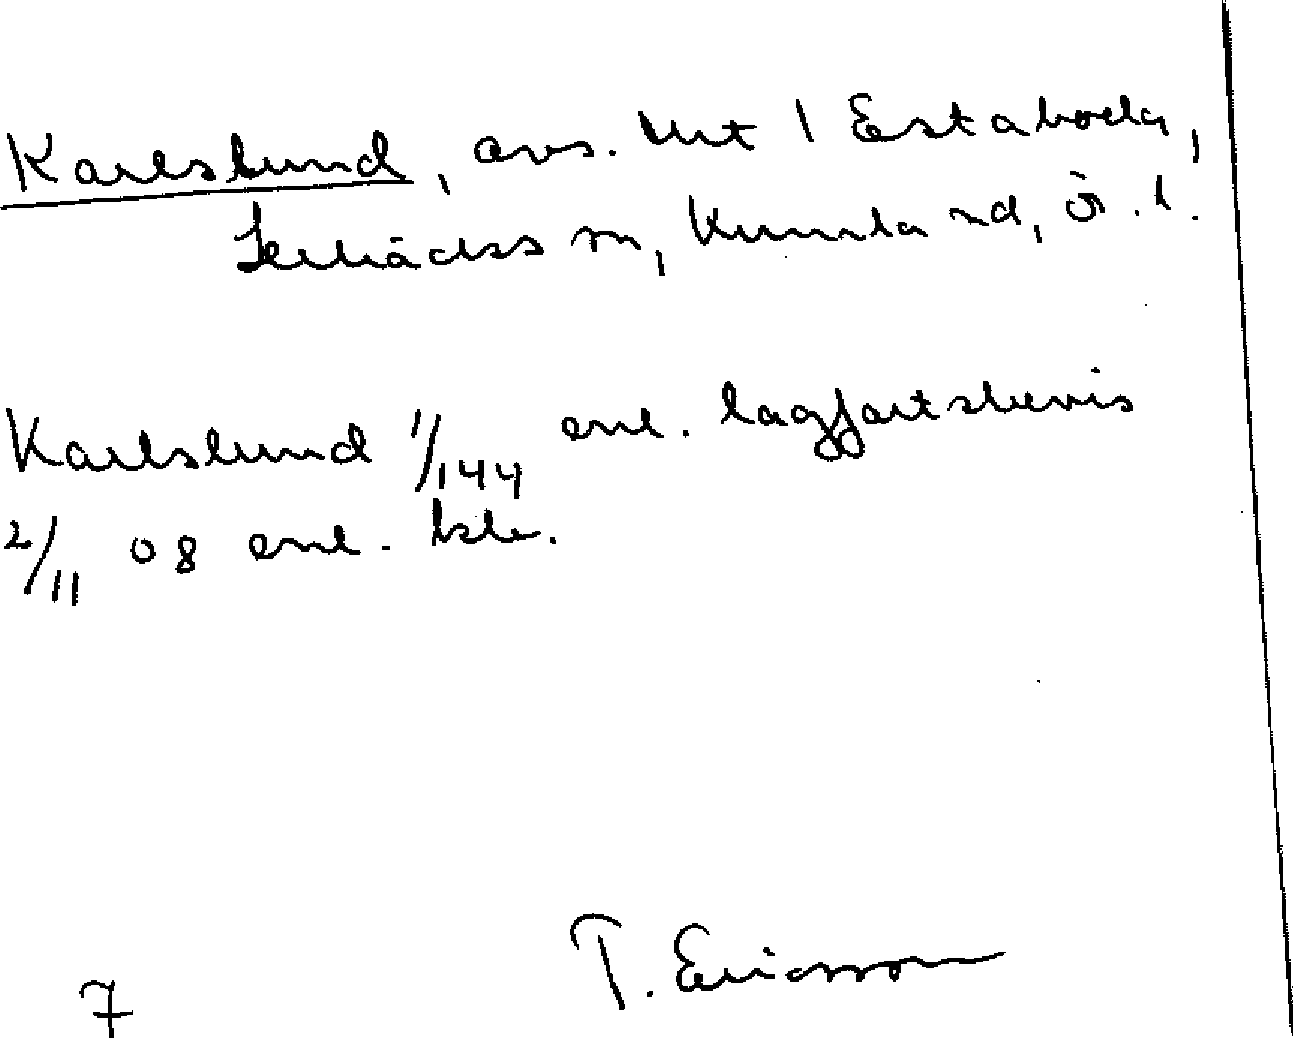 Karlslund, avs. hmt 1 Estaboda,
Sm, Kumla hd, Ö.l.
Karlslund 1/144 enl. lagfartsbevis
2/11 08 enl. kkr.
T. Ericsson
7